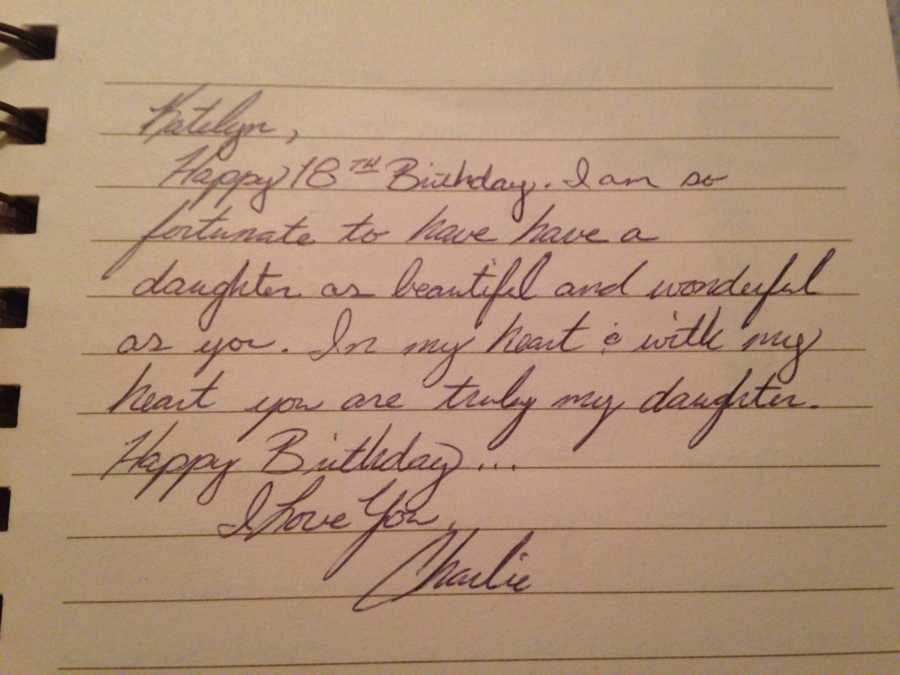 Katelyn,
Happy 18TH Birthday. I am so
fortunate to have have a
daughter as beautiful and wonderful
as you. In my heart & with my
heart you are truly my daughter.
Happy Birthday...
I Love You,
Charlie